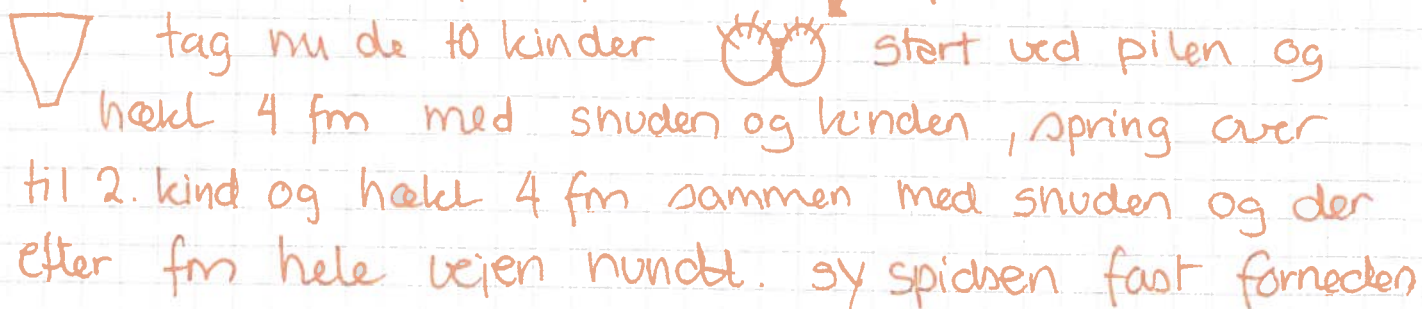 tag nu de to kinder start ved pilen og
hækl 4 fm med snuden og kinden, spring over
til 2. kind og hækl 4 fm sammen med snuden og der
efter fm hele vejen rundt. sy spidsen fast forneden